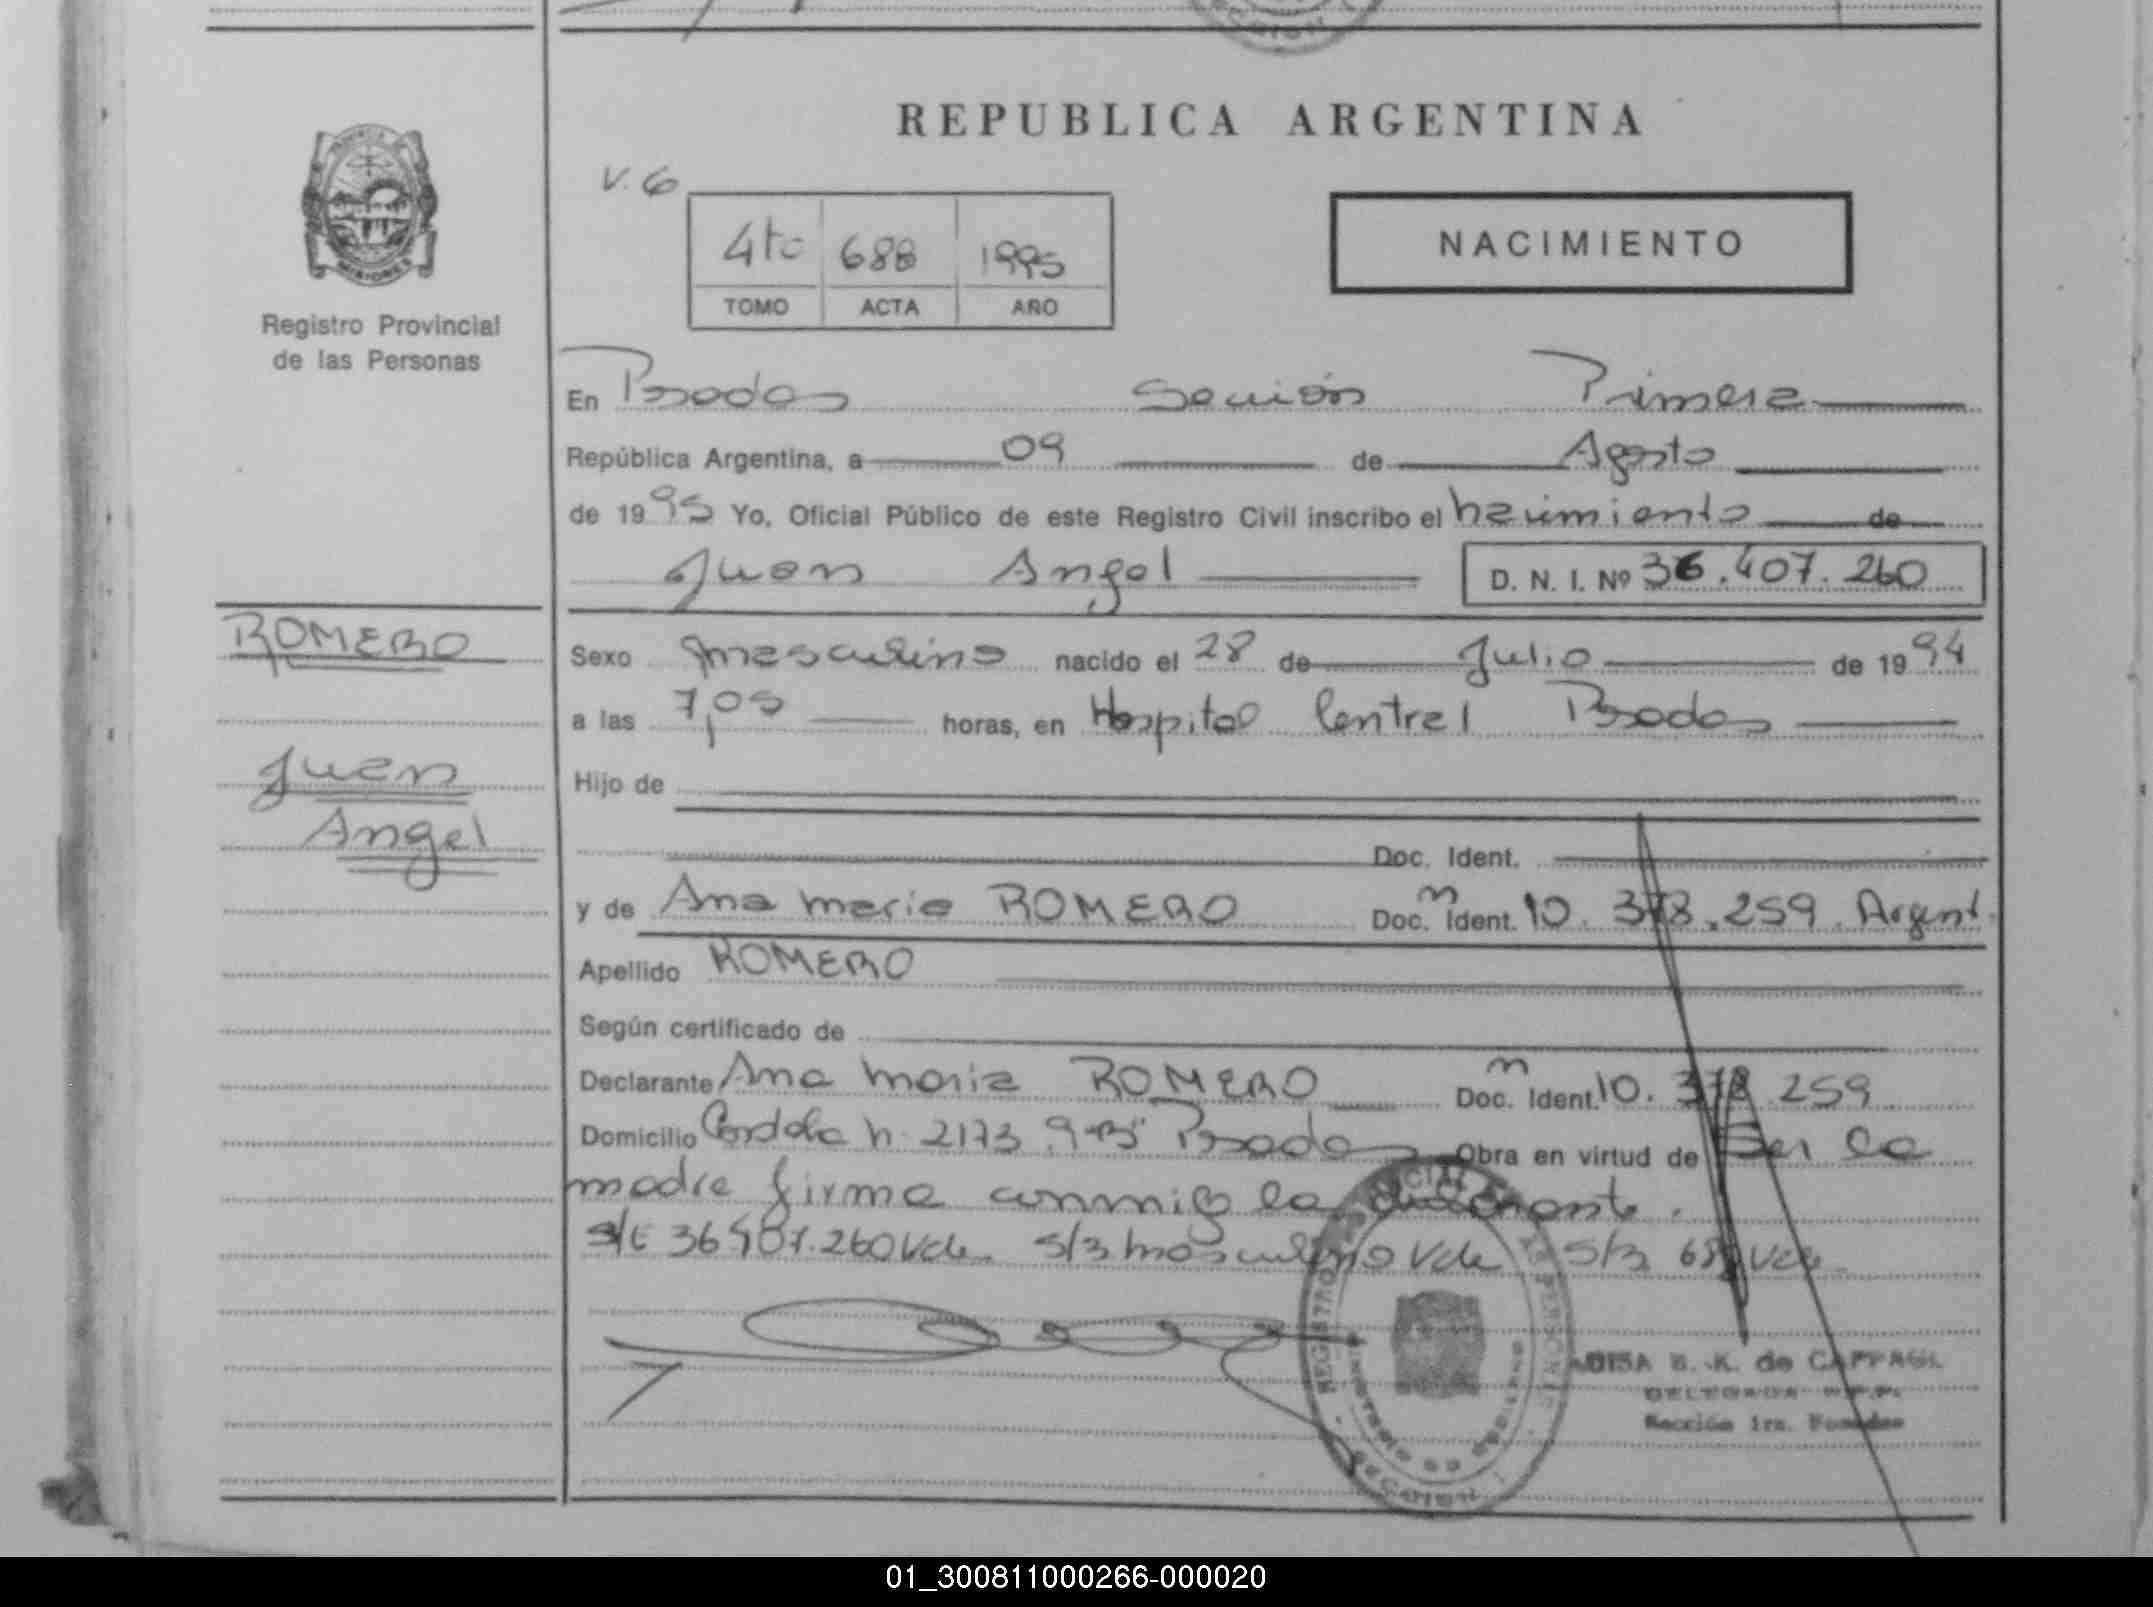 REPUBLICA ARGENTINA
V. 6
4to 688 1995
TOMO ACTA AÑO
NACIMIENTO
MISIONES
Registro Provincial
de las Personas
En Posadas Sección Primera
República Argentina, a 09 de Agosto
de 1995 Yo, Oficial Público de este Registro Civil inscribo el nacimiento de
Juan Angel D. N. I. Nº 36.407.260
ROMERO
Juan
Angel
Sexo masculino nacido el 28 de Julio de 1994
a las 7,05 horas, en Hospital Central Posadas
Hijo de
Doc. Ident.
y de Ana Maria ROMERO Doc. Ident. 10.378.259. Argent.
Apellido ROMERO
Según certificado de
Declarante Ana Maria ROMERO Doc. Ident. 10.378.259
Domicilio Cordoba n. 2173 Posadas Obra en virtud de Ser la
madre firma conmigo la
36407.260 Vale masculino Vale 688 Vale
B. K. de
DELEGADA
Sección 1ra. Posadas
SECCION
01_300811000266-000020